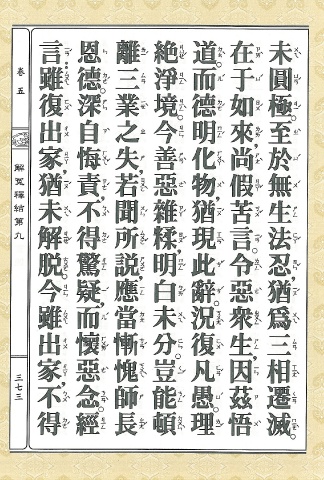 未圓極。至於無生法忍,猶為三相遷滅。
在于如來,尚假苦言,令惡眾生,因茲悟
道。而德明化物,猶現此辭。況復凡愚,理
絕淨境。今善惡雜糅,明白未分,豈能頓
離三業之失。若聞所說,應當慚愧,師長
恩德,深自悔責,不得驚疑,而懷惡念。經
言:雖復出家,猶未解脫。今雖出家,不得
卷五
解冤釋結第九
三七三